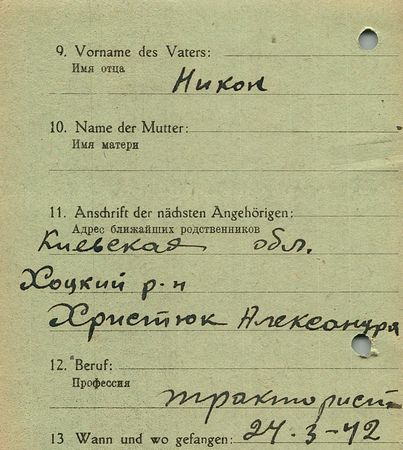 9. Vorname des Vaters:
Имя отца
Никон
10. Name der Mutter:
Имя матери
11. Anschrift der nächsten Angehörigen:
Адрес ближайших родственников
Киевская обл.
Хоцкий р-н
Христюк Александра
12. Beruf:
Профессия
тракторист
13 Wann und wo gefangen: 24.3-42